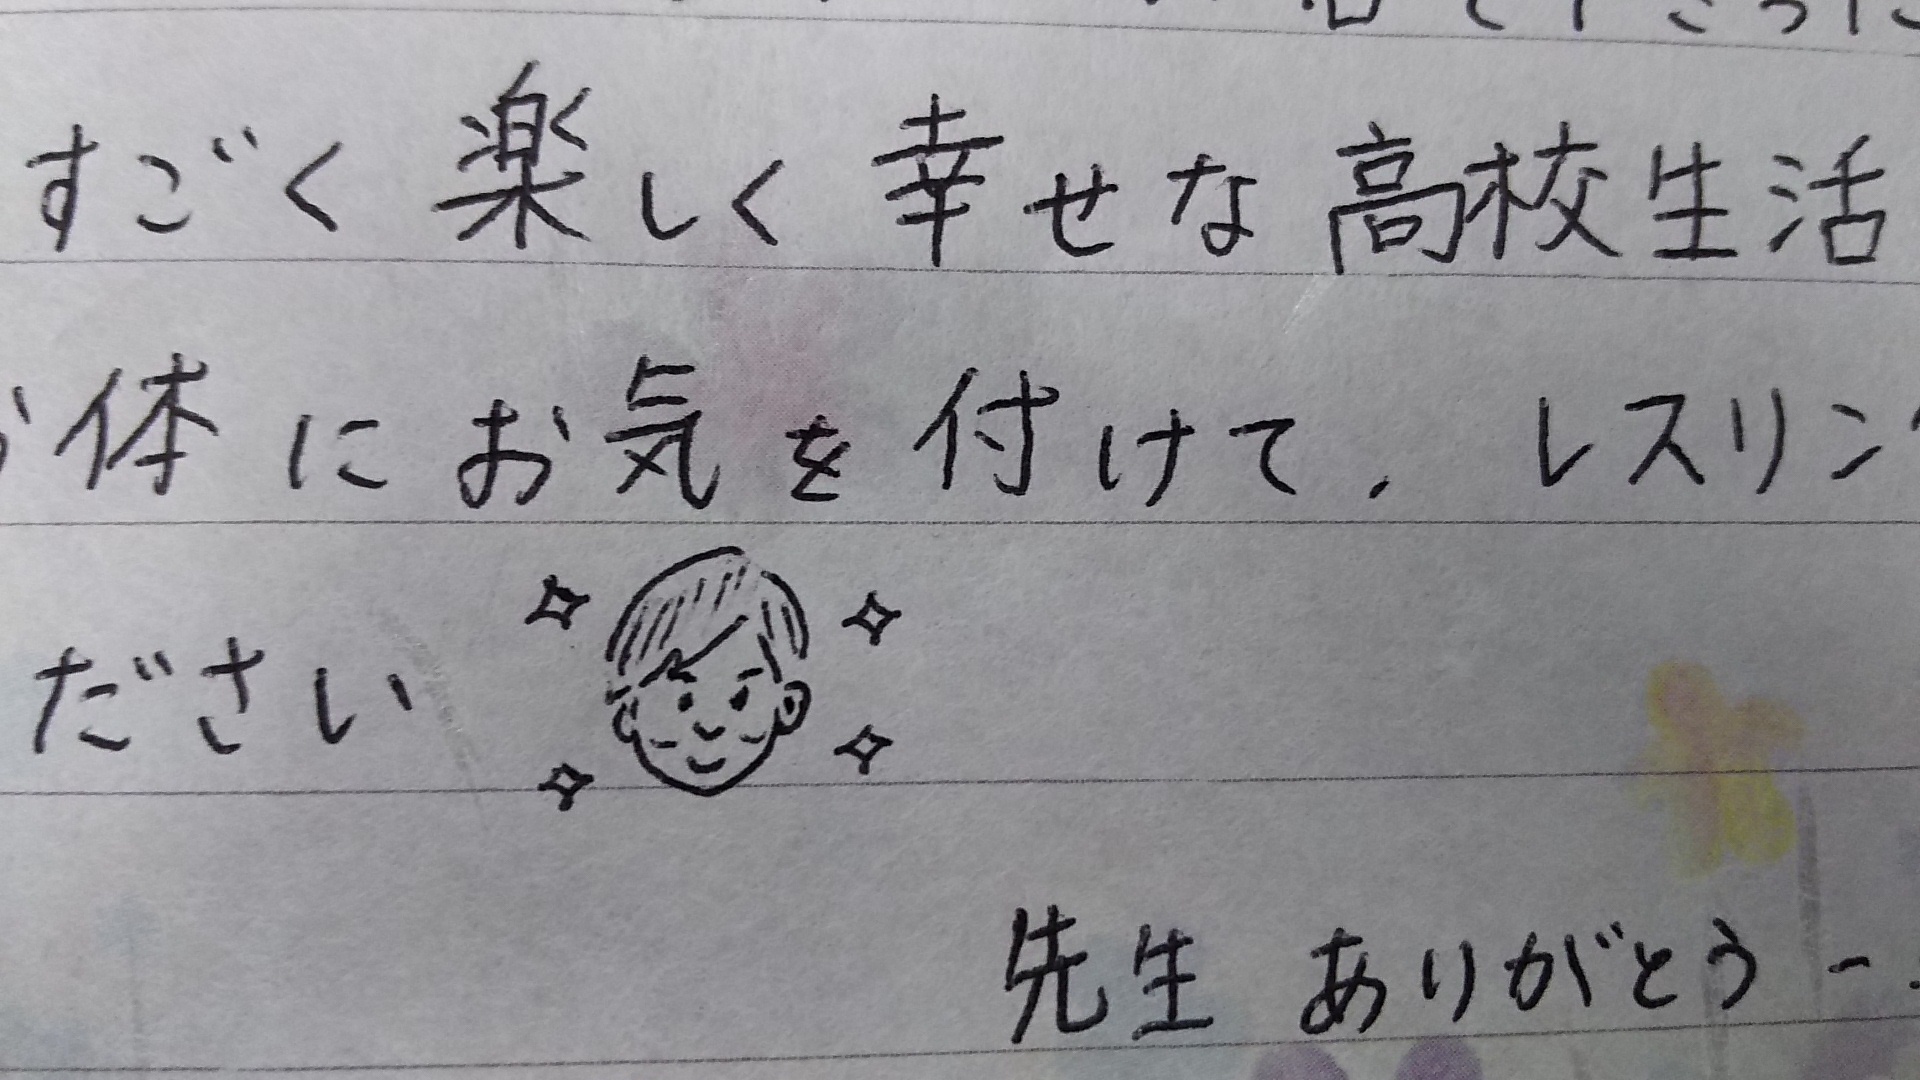 すごく楽しく幸せな高校生活
体にお気を付けて、レスリン
ださい
先生ありがとうー